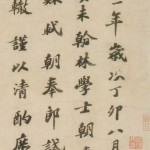 年歲次丁卯八月
未翰林學士朝
軾朝奉郎試
轍謹以清酌庶